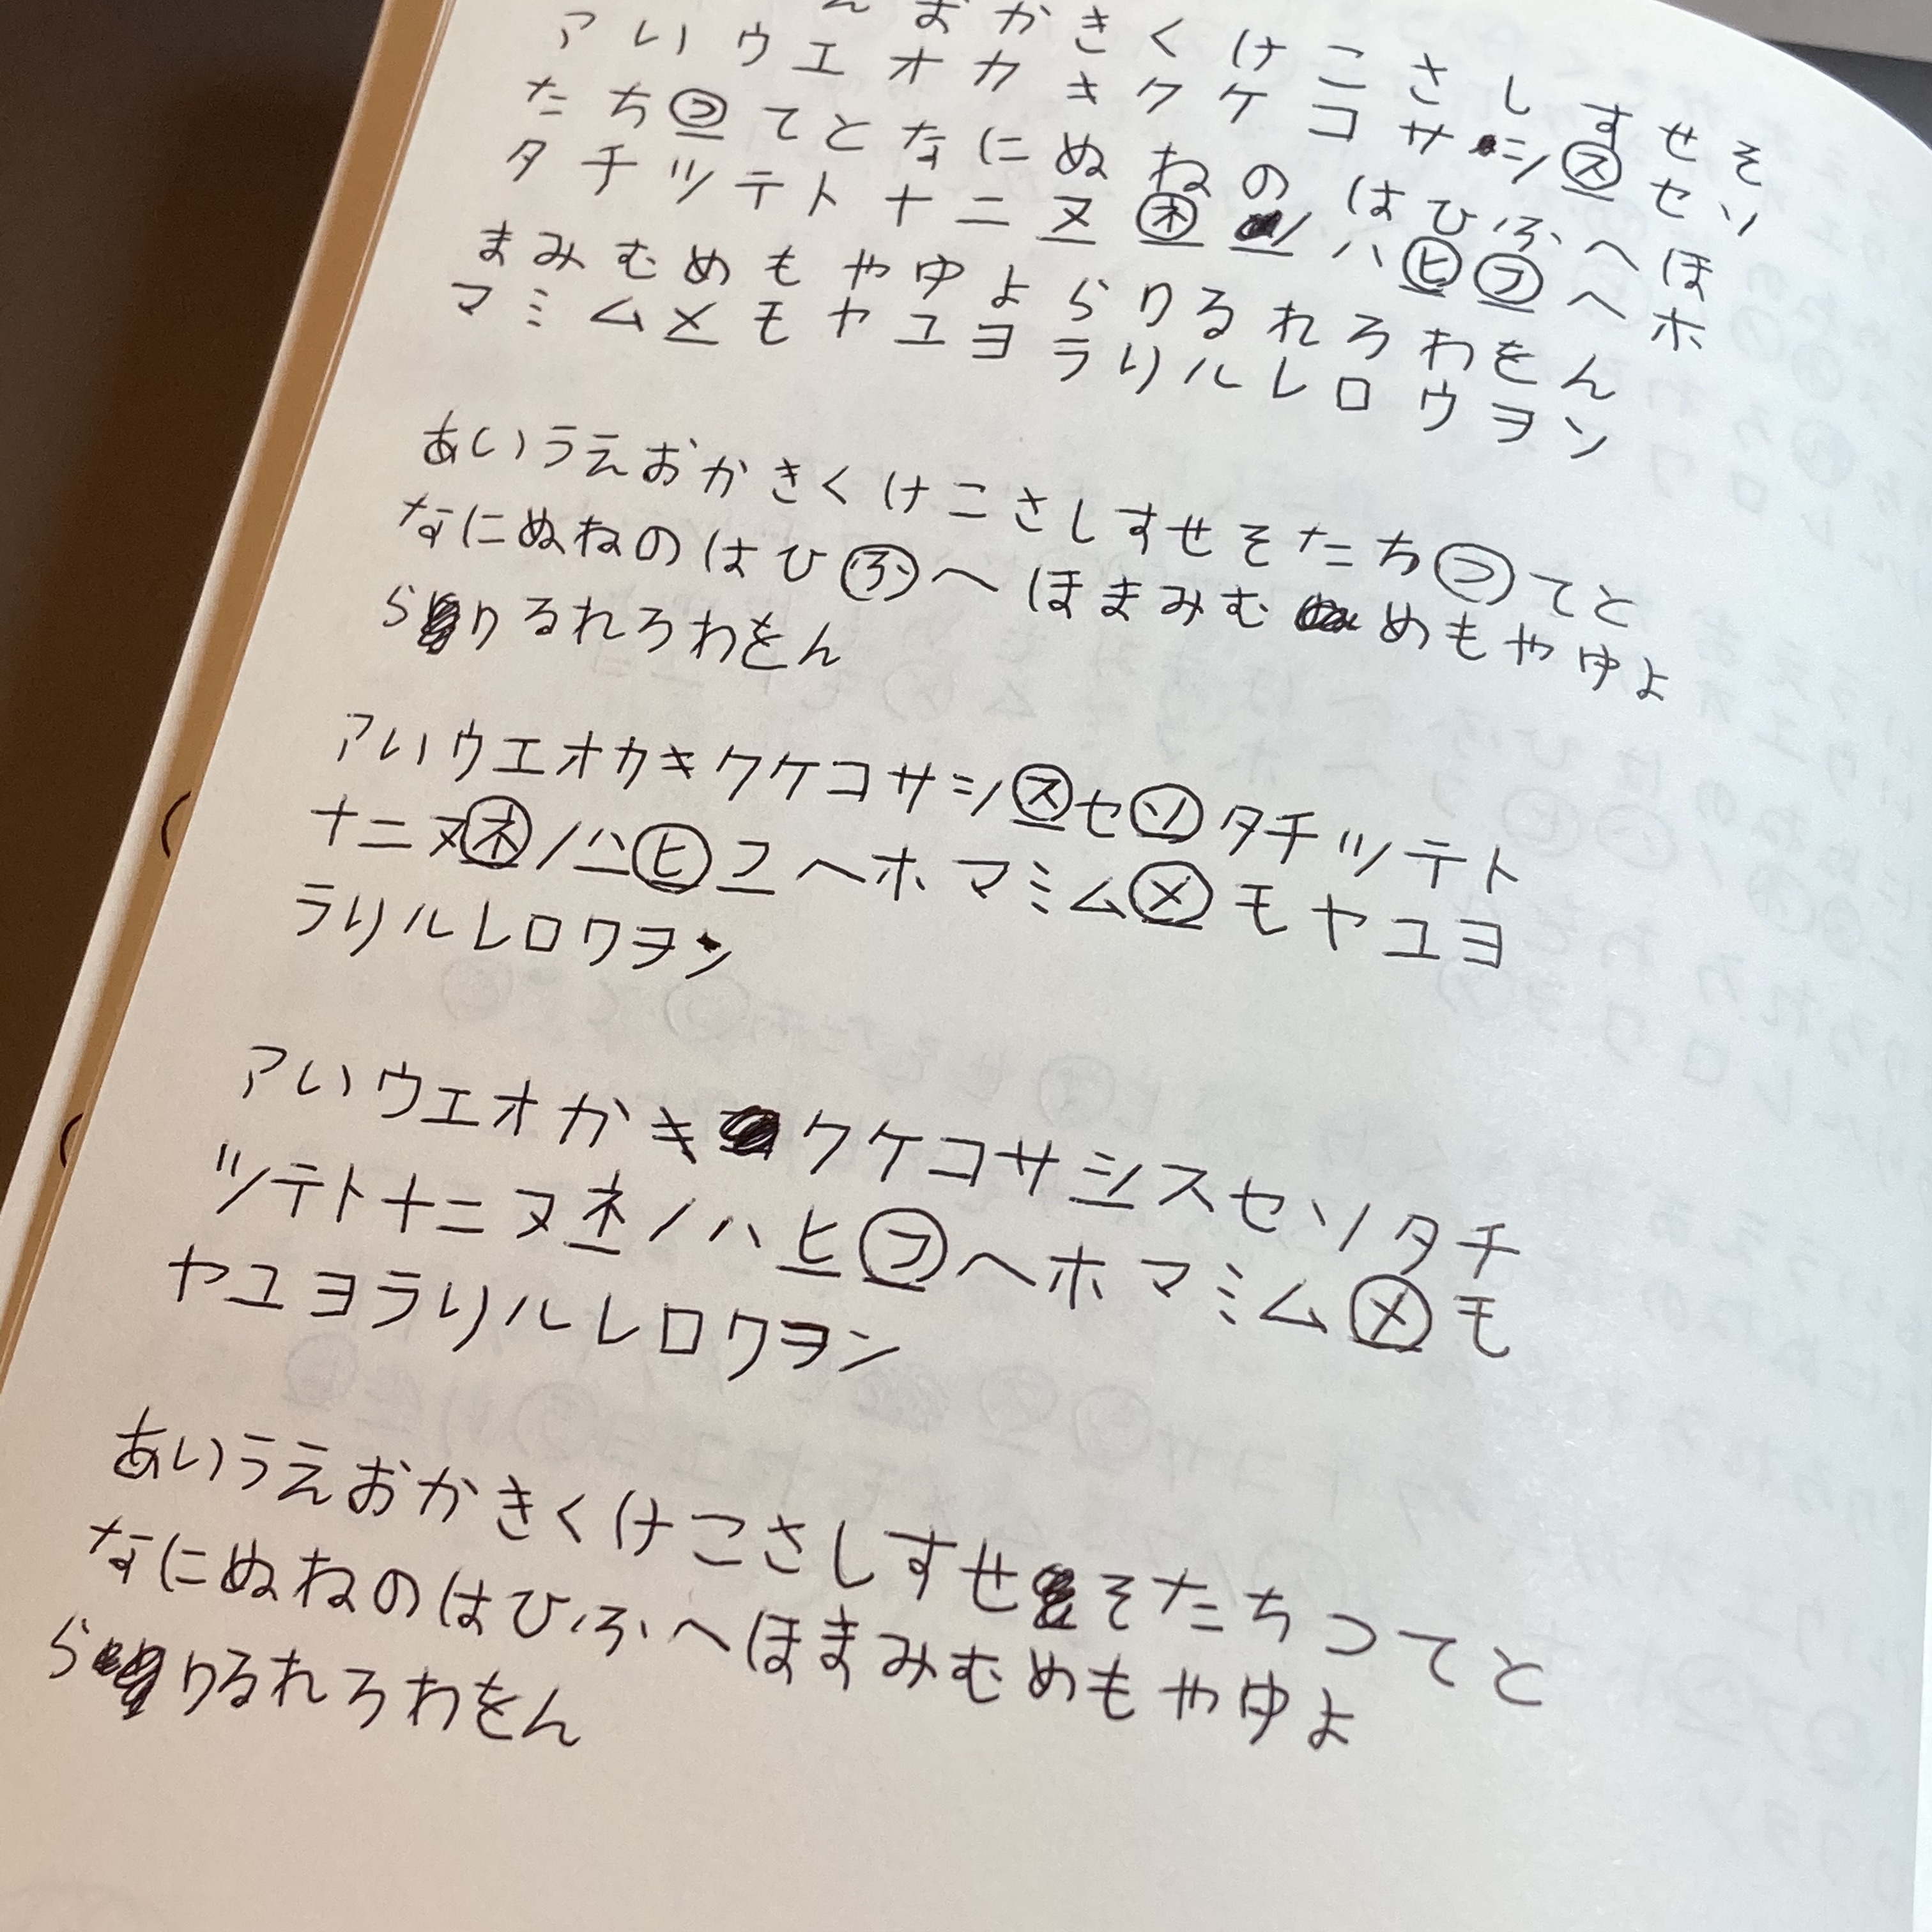 えおかきくけこさしすせそ
アいウエオカキクケコサシスセソ
たちつてとなにぬねのはひふへほ
タチツテトナニヌネノハヒフヘホ
まみむめもやゆよらりるれろわをん
マミムメモヤユヨラリルレロウヲン
あいうえおかきくけこさしすせそたちつてと
なにぬねのはひふへほまみむめもやゆよ
らりるれろわをん
アいウエオカキクケコサシスセソタチツテト
ナニヌネノハヒフヘホマミムメモヤユヨ
ラリルレロワヲン
アいウエオかキクケコサシスセソタチ
ツテトナニヌネノハヒフヘホマミムメモ
ヤユヨラリルレロワヲン
あいうえおかきくけこさしすせそたちつてと
なにぬねのはひふへほまみむめもやゆよ
らりるれろわをん